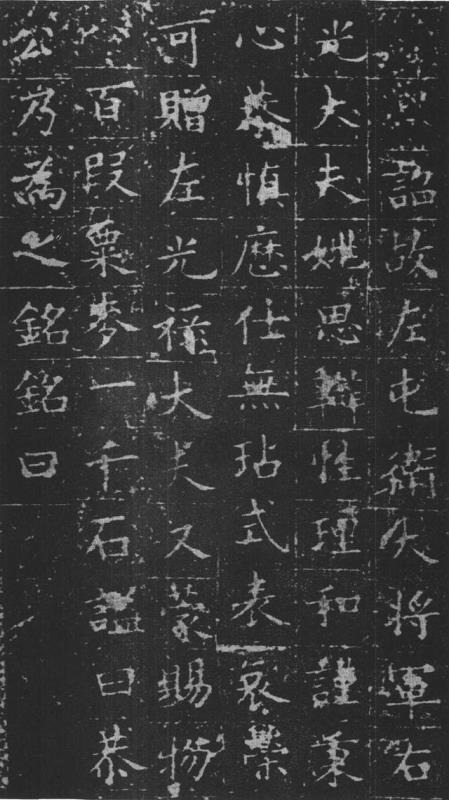 詔故左屯衛大將軍右
光大夫姚思辯性理和謹秉
心恭慎歷仕無玷式表哀榮
可贈左光祿大夫又蒙賜物
百段粟麥一千石謚曰恭
公乃為之銘銘曰